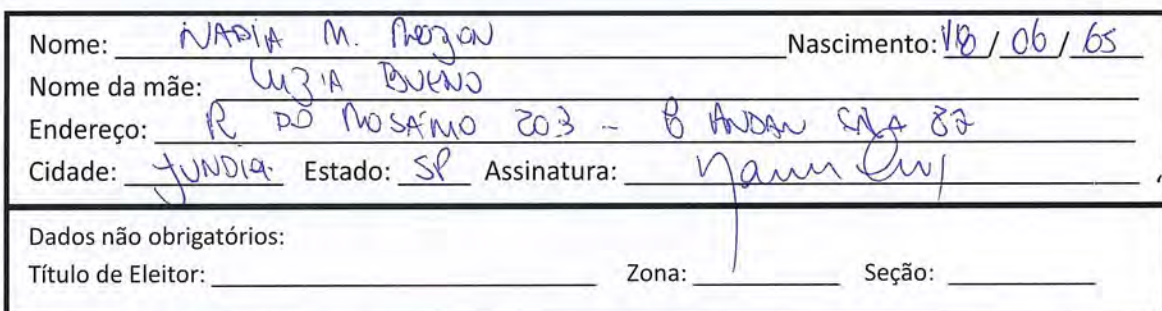 Nome: NADIA M. Nascimento: 18 / 06 / 65
Nome da mãe: LUZIA BUENO
Endereço: R DO ROSÁRIO 203 - 8 ANDAR SALA 82
Cidade: JUNDIAI Estado: SP Assinatura:
Dados não obrigatórios:
Título de Eleitor: Zona: Seção: